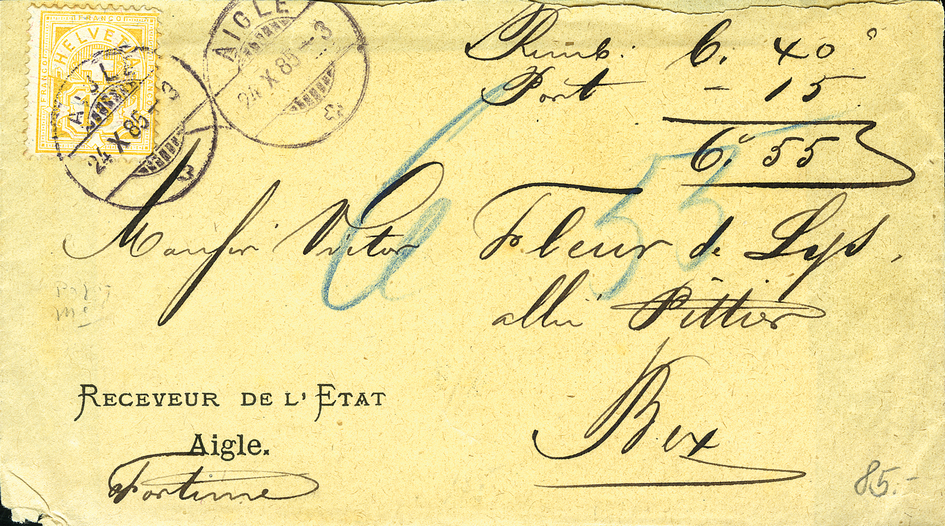 FRANCO
HELVETIA
AIGLE
24 X 85 - 3
AIGLE
24 X 85 - 3
Remb. 6. 40
Port - 15
6. 55
6 55
Monsr Victor Fleur de Lys,
allié Pittier
Bex
RECEVEUR DE L'ETAT
Aigle.
Fortune
85.-